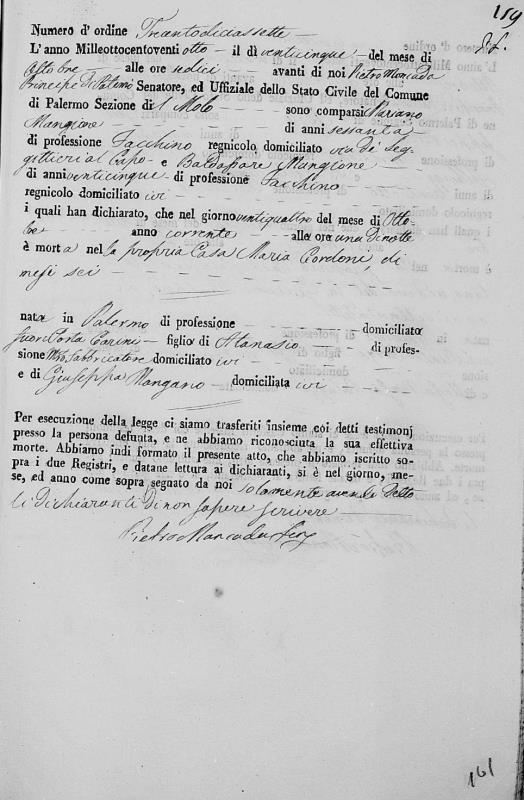 159
Numero d' ordine Trecentodiciassette
L'anno Milleottocentoventi otto il dì venticinque del mese di
Ottobre alle ore sedici avanti di noi Pietro Moncada
Principe di Paternò Senatore, ed Uffiziale dello Stato Civile del Comune
di Palermo Sezione di Molo sono comparsi Mariano
Mangione di anni sessanta
di professione Facchino regnicolo domiciliato via de' Seg-
gettieri al Capo e Baldassare Mangione
di anni venticinque di professione Facchino
regnicolo domiciliato ivi
i quali han dichiarato, che nel giorno ventiquattro del mese di Otto-
bre anno corrente alle ore una di notte
è morta nella propria Casa Maria Cordoni, di
mesi sei
nata in Palermo di professione domiciliata
fuori Porta Carini figlia di Atanasio di profes-
sione Mro fabricatore domiciliato ivi
e di Giuseppa Mangano domiciliata ivi
Per esecuzione della legge ci siamo trasferiti insieme coi detti testimonj
presso la persona defunta, e ne abbiamo riconosciuta la sua effettiva
morte. Abbiamo indi formato il presente atto, che abbiamo iscritto so-
pra i due Registri, e datane lettura ai dichiaranti, si è nel giorno, me-
se, ed anno come sopra segnato da noi solamente avendo detto
li dichiaranti di non sapere scrivere
Pietro Moncada
161